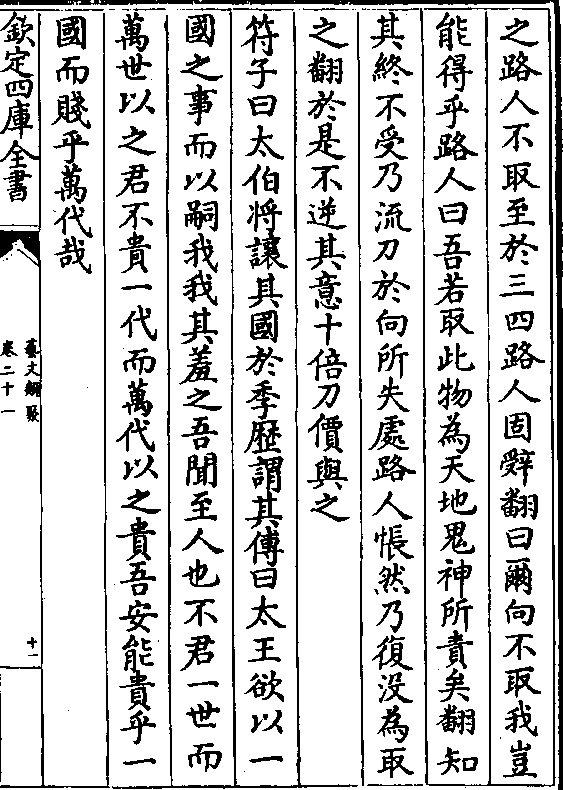 之路人不取至於三四路人固辭翻曰爾向不取我豈
能得乎路人曰吾若取此物為天地鬼神所責矣翻知
其終不受乃流刀於向所失處路人悵然乃復沒為取
之翻於是不逆其意十倍刀價與之
符子曰太伯將讓其國於季歴謂其傅曰太王欲以一
國之事而以嗣我我其羞之吾聞至人也不君一世而
萬世以之君不貴一代而萬代以之貴吾安能貴乎一
國而賤乎萬代哉
欽定四庫全書
藝文類聚
卷二十一
十一